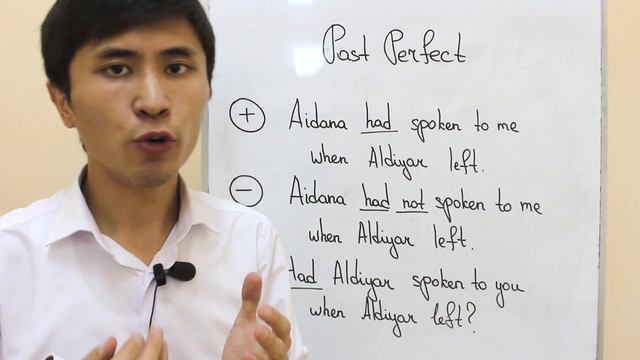 Past Perfect
+ Aidana had spoken to me
when Aldiyar left.
− Aidana had not spoken to me
when Aldiyar left.
Had Aldiyar spoken to you
when Aldiyar left?